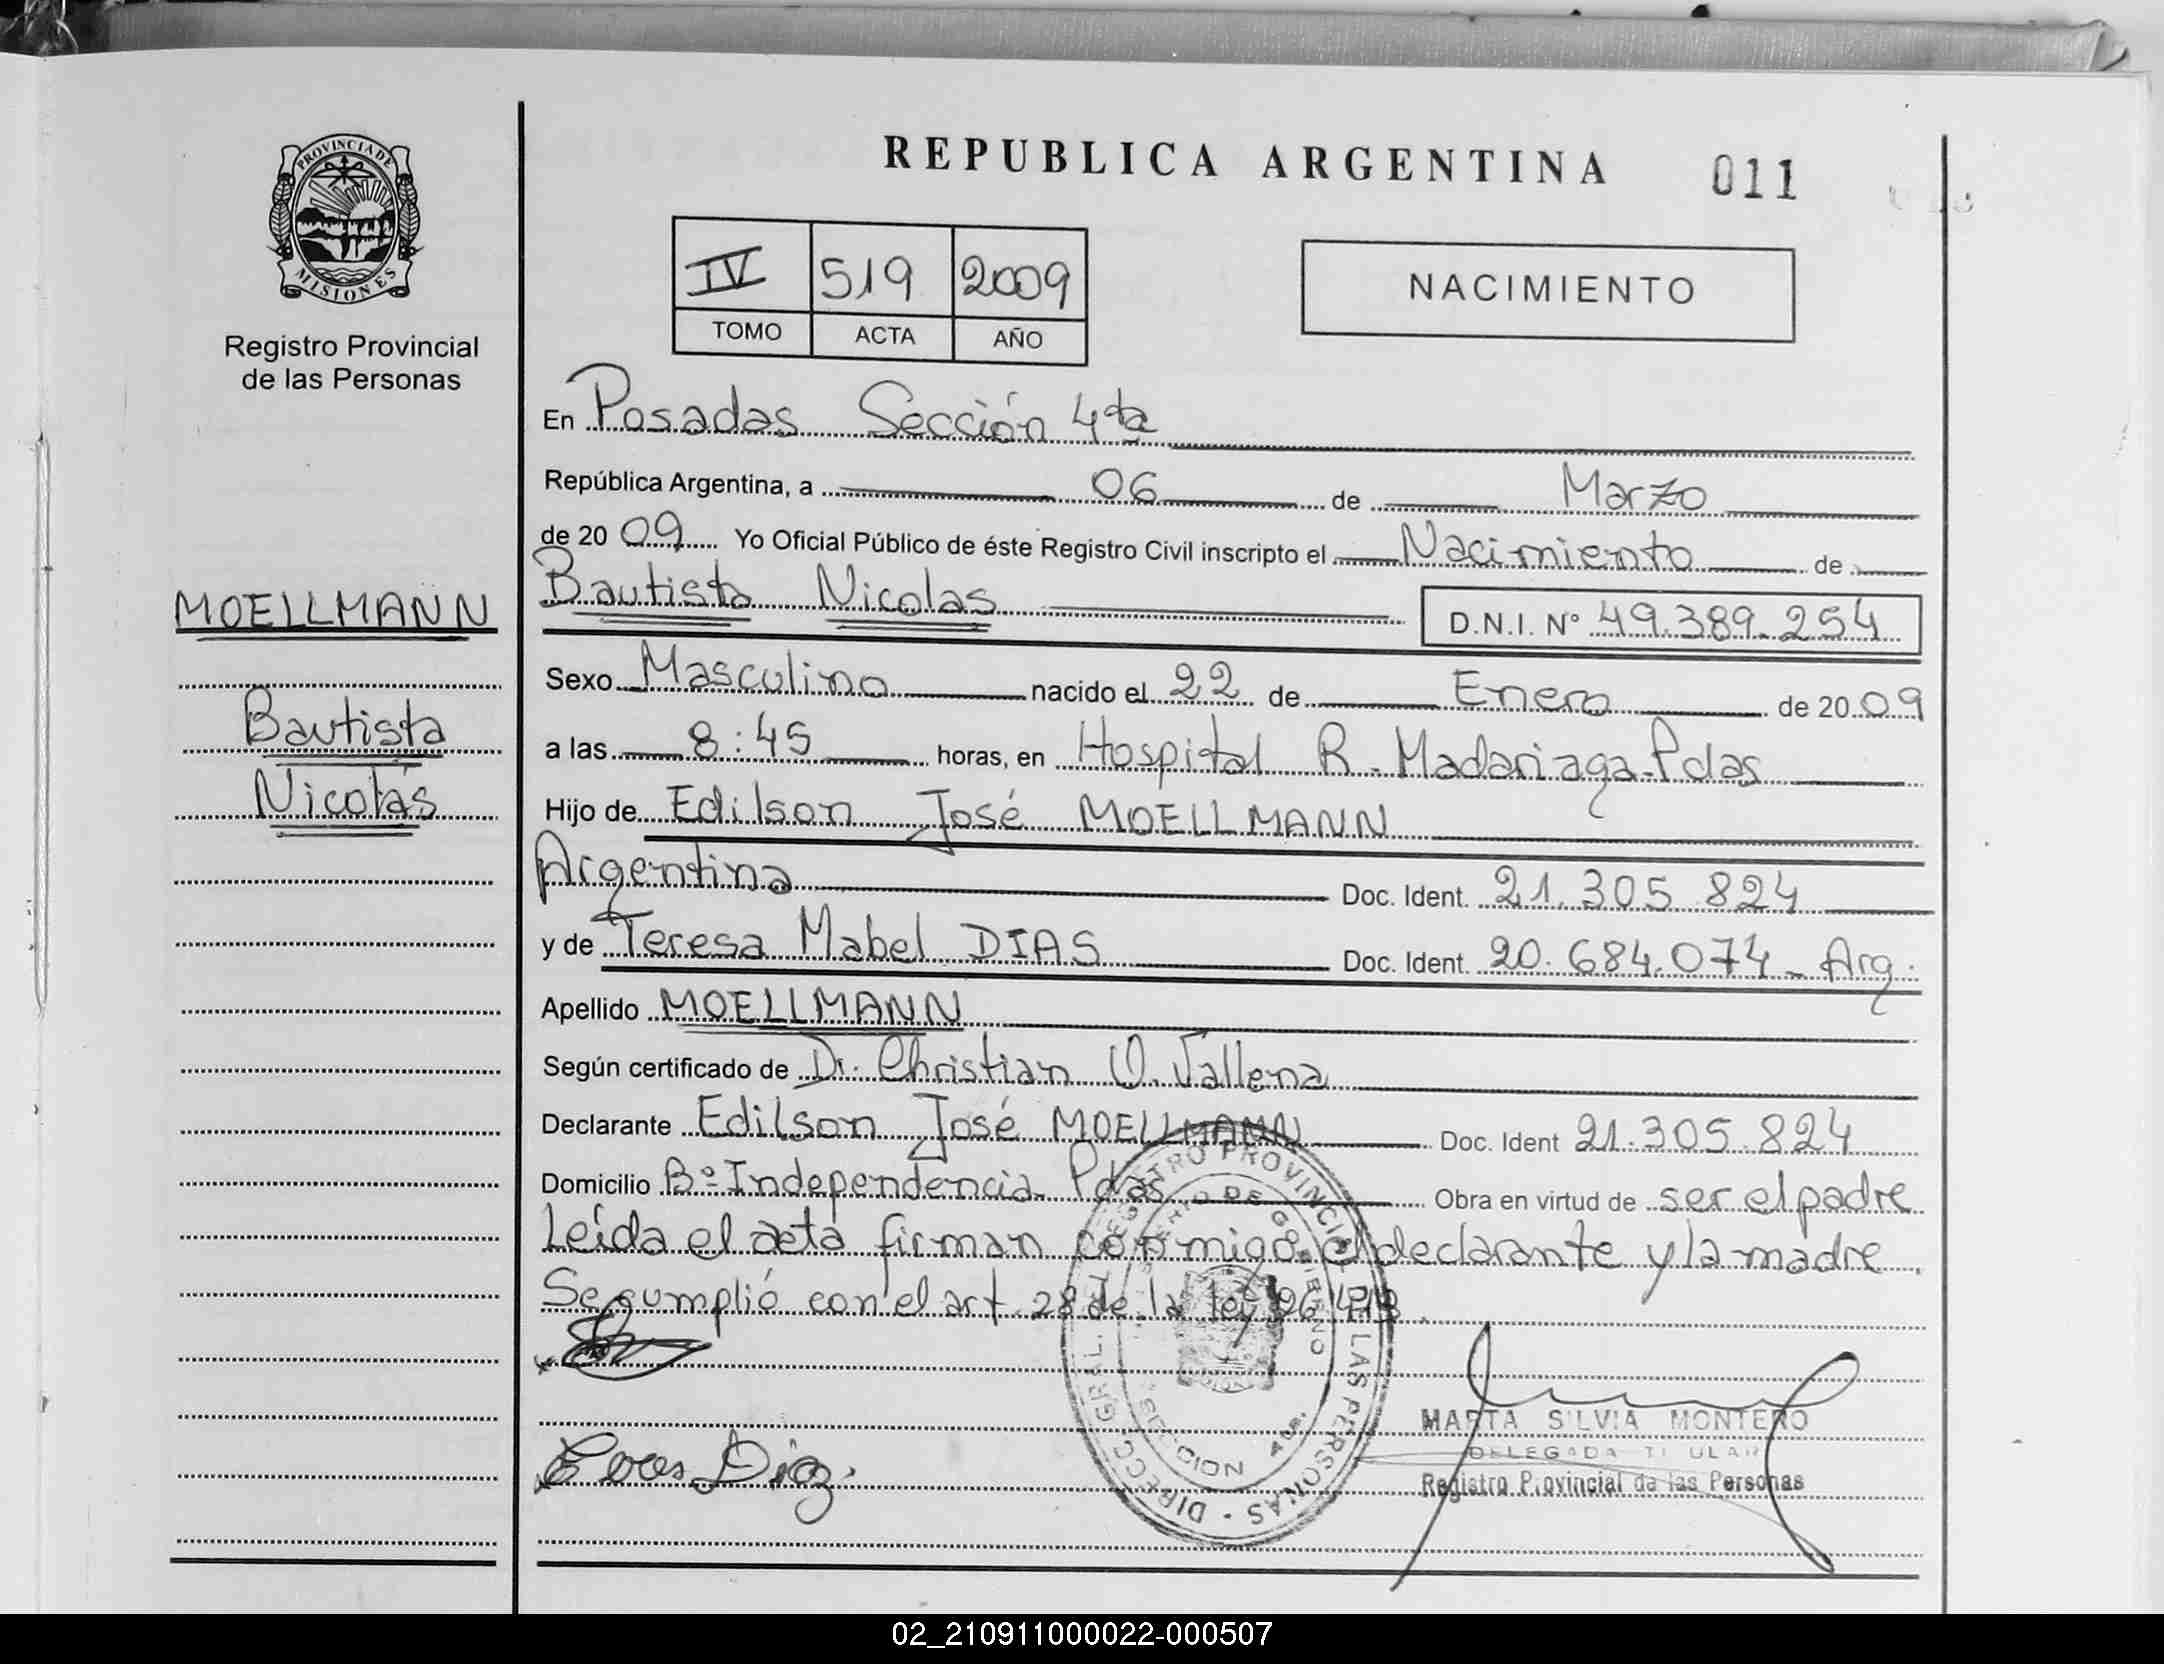 REPUBLICA ARGENTINA 011
PROVINCIA DE
MISIONES
Registro Provincial
de las Personas
IV 519 2009
TOMO ACTA AÑO
NACIMIENTO
En Posadas Sección 4ta
República Argentina, a 06 de Marzo
de 20 09 Yo Oficial Público de éste Registro Civil inscripto el Nacimiento de
Bautista Nicolas D.N.I. N° 49.389.254
MOELLMANN
Bautista
Nicolás
Sexo Masculino nacido el 22 de Enero de 20 09
a las 8:45 horas, en Hospital R. Madariaga-Pdas
Hijo de Edilson José MOELLMANN
Argentina Doc. Ident. 21.305.824
y de Teresa Mabel DIAS Doc. Ident. 20.684.074 - Arg.
Apellido MOELLMANN
Según certificado de Dr. Christian O. Vallena
Declarante Edilson José MOELLMANN Doc. Ident 21.305.824
Domicilio Bº Independencia Pdas Obra en virtud de ser el padre
Leída el acta firman conmigo el declarante y la madre.
Se cumplió con el art. 28 de la ley 26.413.
DIRECC. GRAL. REGISTRO PROVINCIAL DE LAS PERSONAS
MINISTERIO DE GOBIERNO
MARTA SILVIA MONTERO
DELEGADA TITULAR
Registro Provincial de las Personas
Diaz.
02_210911000022-000507